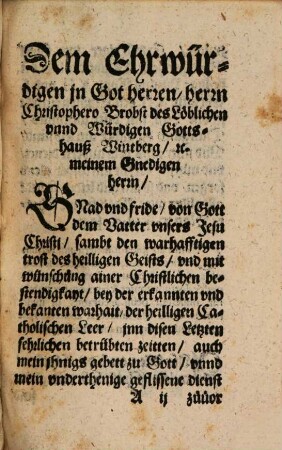 Dem Ehrwür-
digen jn Got herren/ herrn
Christophero Brobst des Löblichen
vnnd Würdigen Gotts-
hauß Wintberg/ ꝛc.
meinem Gnedigen
herrn/
GNad vnd fride/ von Gott
dem Vatter vnsers Jesu
Christi/ sambt den warhafftigen
trost des heilligen Geists/ vnd mit
wünschung ainer Christlichen be-
stendigkayt/ bey der erkannten vnd
bekanten warhait/ der heilligen Ca-
tholischen Leer/ jnn disen Letzten
fehrlichen betrübten zeitten/ auch
mein jhnigs gebett zu Gott/ vnnd
mein vnderthenige geflissene dienst
A ij zůuor